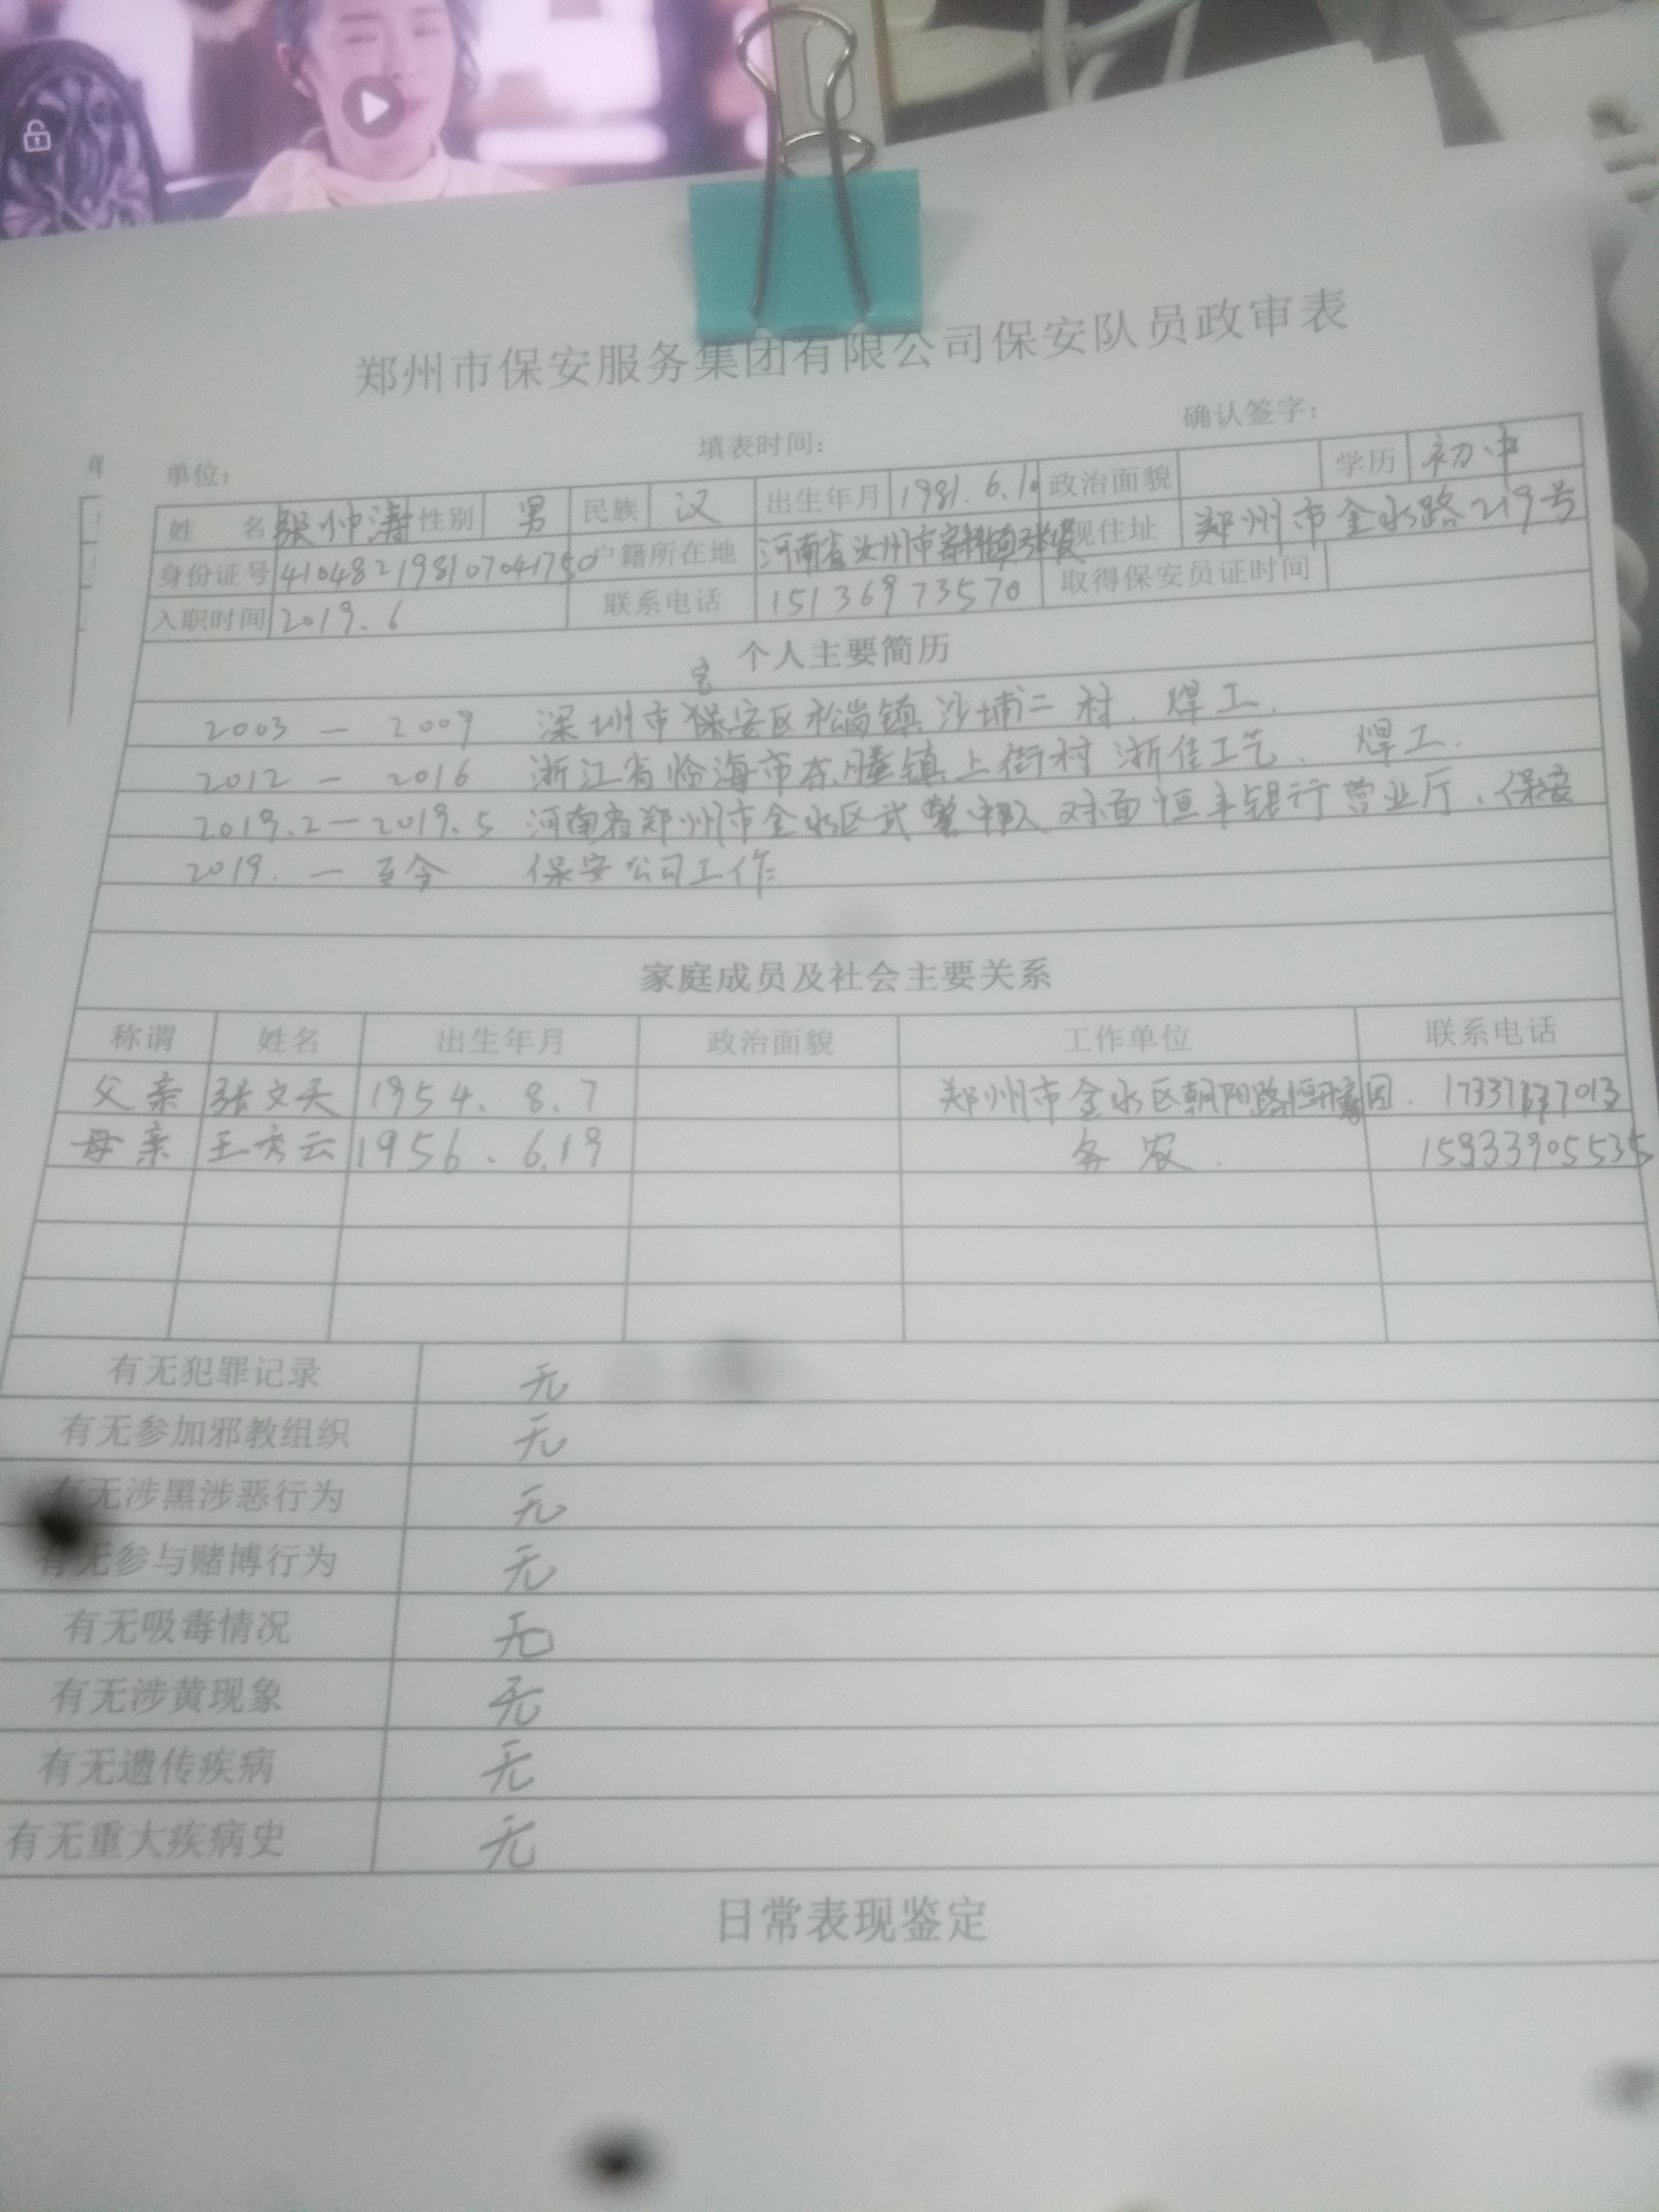 郑州市保安服务集团有限公司保安队员政审表
单位： 填表时间： 确认签字：
姓 名 张帅涛 性别 男 民族 汉 出生年月 1981.6.10 政治面貌 学历 初中
身份证号 410482198107041750 户籍所在地 河南省汝州市寄料镇 现住址 郑州市金水路219号
入职时间 2019.6 联系电话 15136973570 取得保安员证时间
个人主要简历
宝
2003 — 2009 深圳市保安区松岗镇沙埔二村. 焊工.
2012 — 2016 浙江省临海市东塍镇上街村浙佳工艺. 焊工.
2019.2 — 2019.5 河南省郑州市金水区武警 对面恒丰银行营业厅. 保安
2019. — 至今 保安公司工作
家庭成员及社会主要关系
称谓 姓名 出生年月 政治面貌 工作单位 联系电话
父亲 张文天 1954. 8. 7 郑州市金水区朝阳路 园.
母亲 王秀云 1956. 6.19 务农. 15933905535
有无犯罪记录 无
有无参加邪教组织 无
有无涉黑涉恶行为 无
有无参与赌博行为 无
有无吸毒情况 无
有无涉黄现象 无
有无遗传疾病 无
有无重大疾病史 无
日常表现鉴定